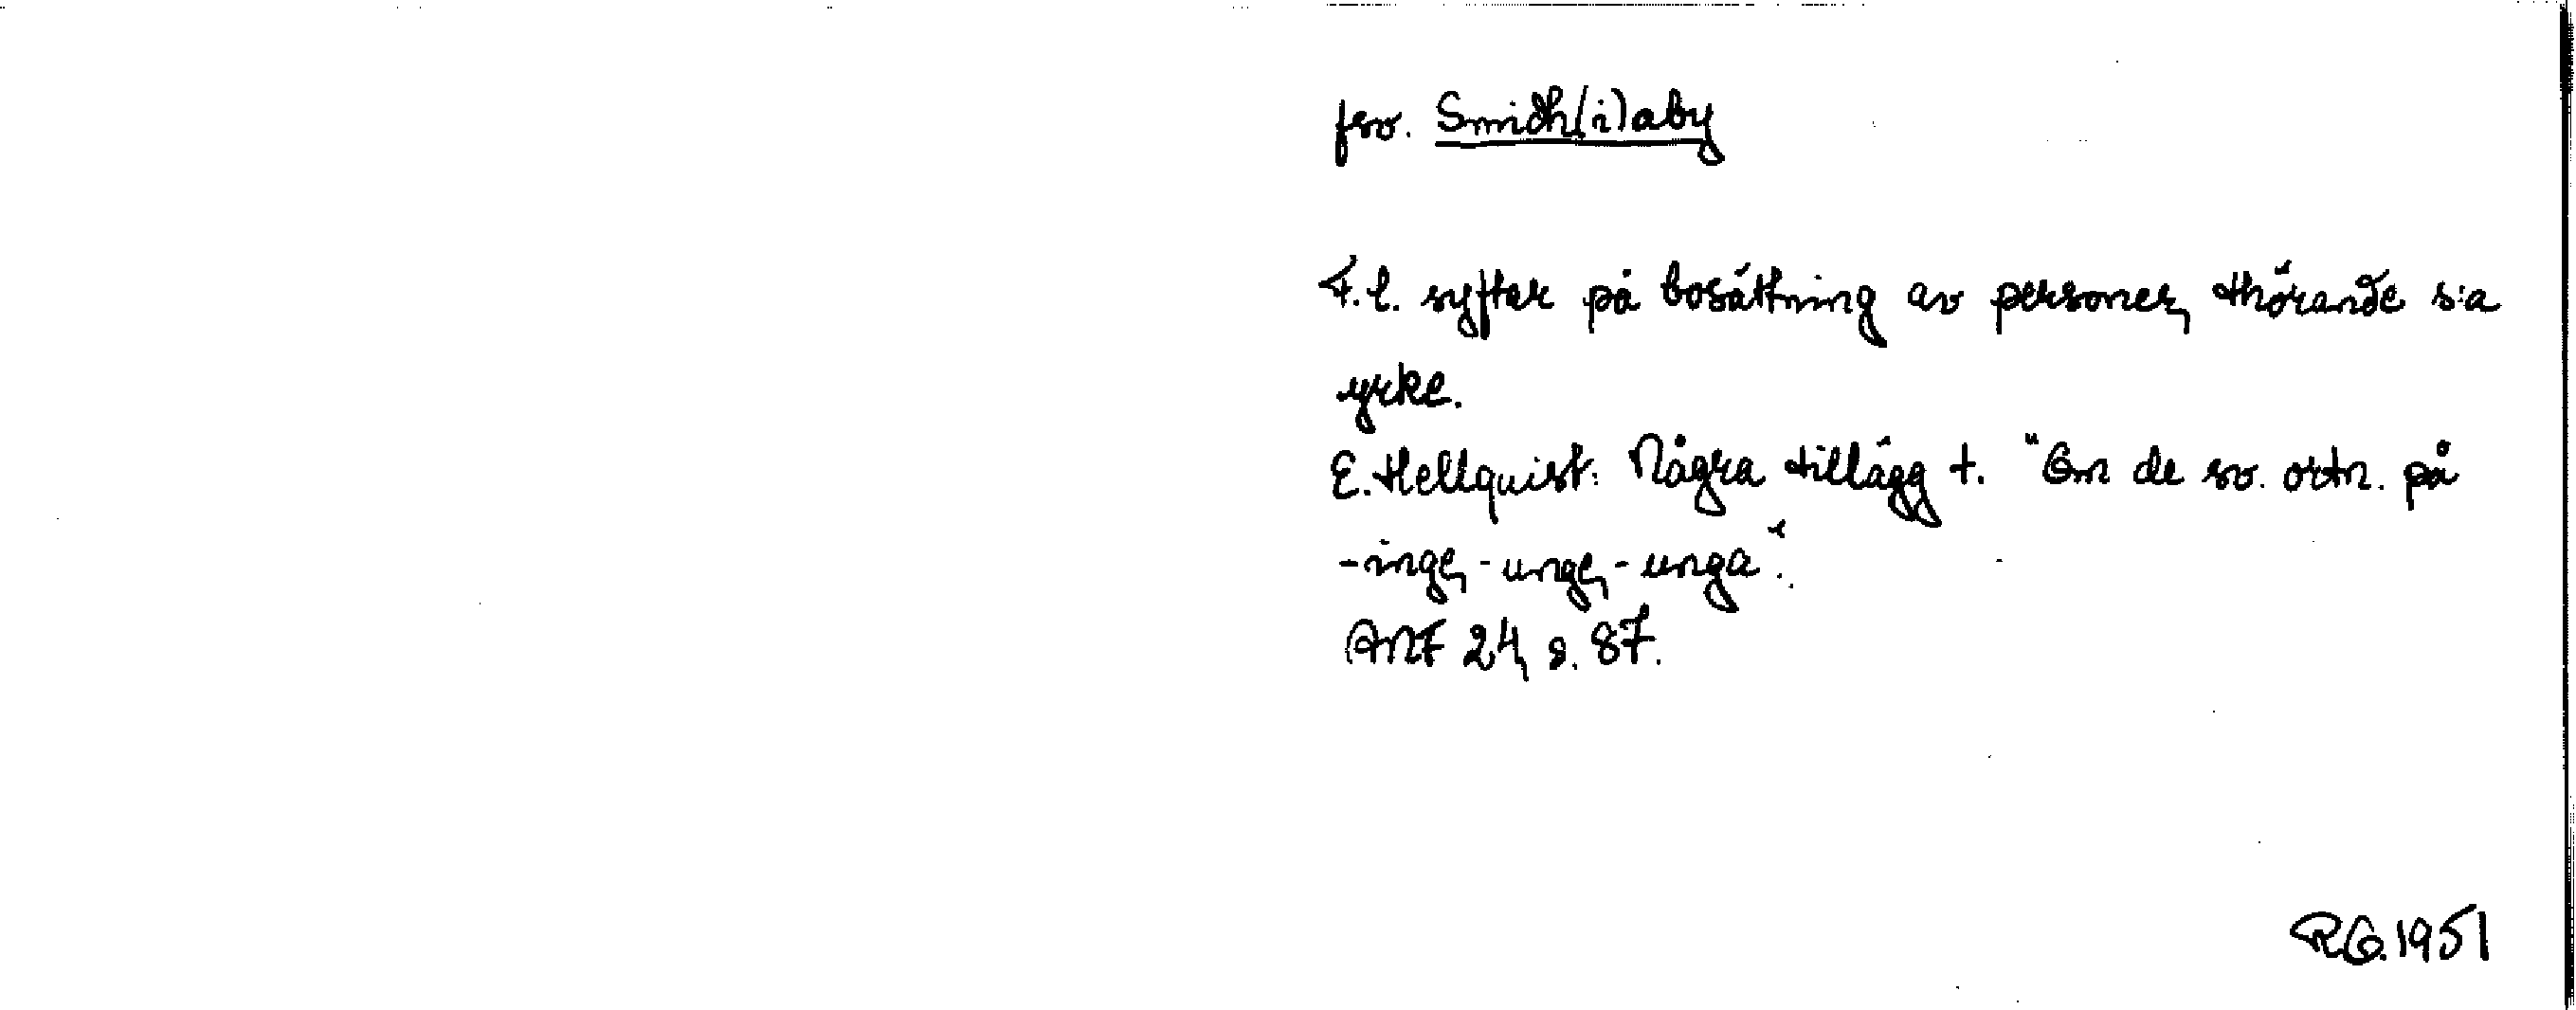 fsv. Smidh(i)aby
F.l. syftar på bosättning av personer, thörande s:a
yrke.
E. Hellquist: Några tillägg t. "Om de sv. ortn. på
-inge, -unge, -unga".
ANF 24, s. 87.
RG.1951